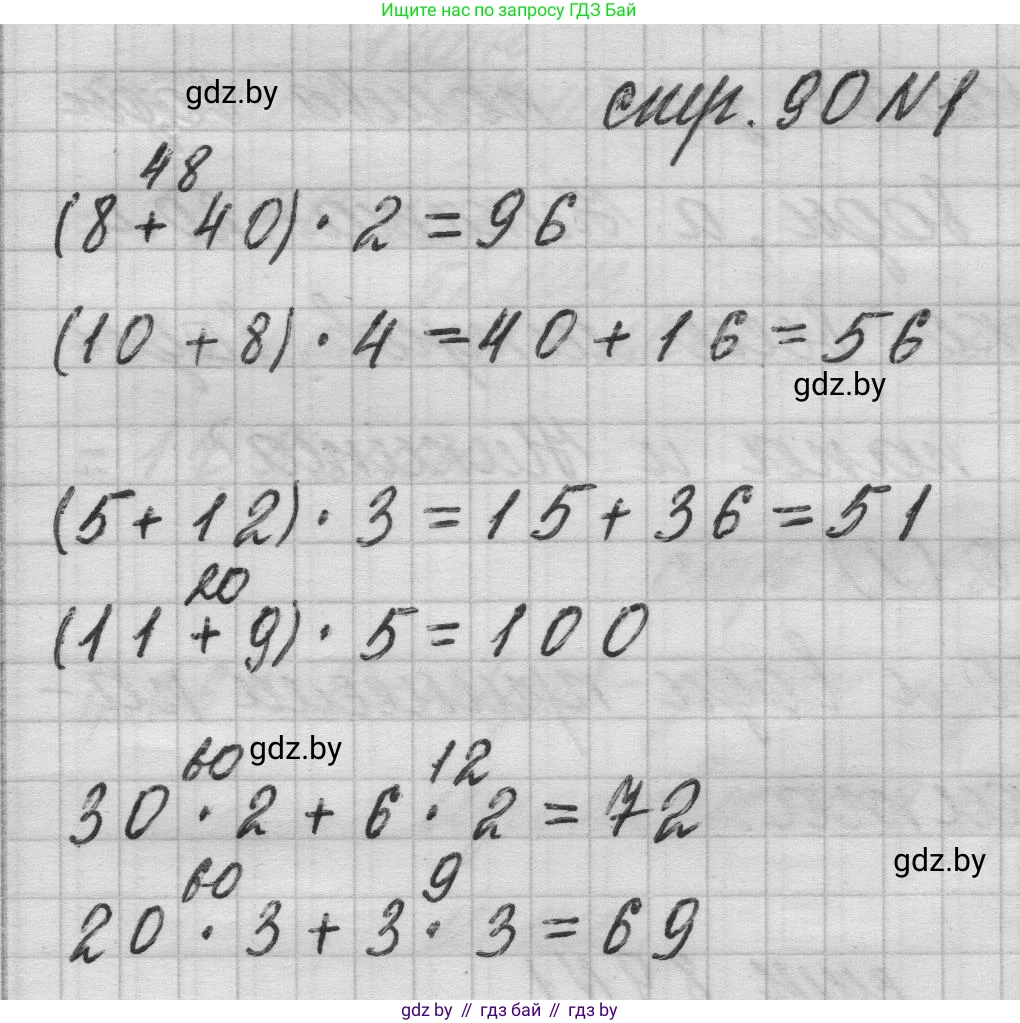 Ищите нас по запросу ГДЗ Бай
gdz.by
стр. 90 №1
48
(8 + 40) · 2 = 96
(10 + 8) · 4 = 40 + 16 = 56
gdz.by
(5 + 12) · 3 = 15 + 36 = 51
20
(11 + 9) · 5 = 100
60 gdz.by 12
30 · 2 + 6 · 2 = 72
gdz.by
60 9
20 · 3 + 3 · 3 = 69
gdz.by // гдз бай // гдз by